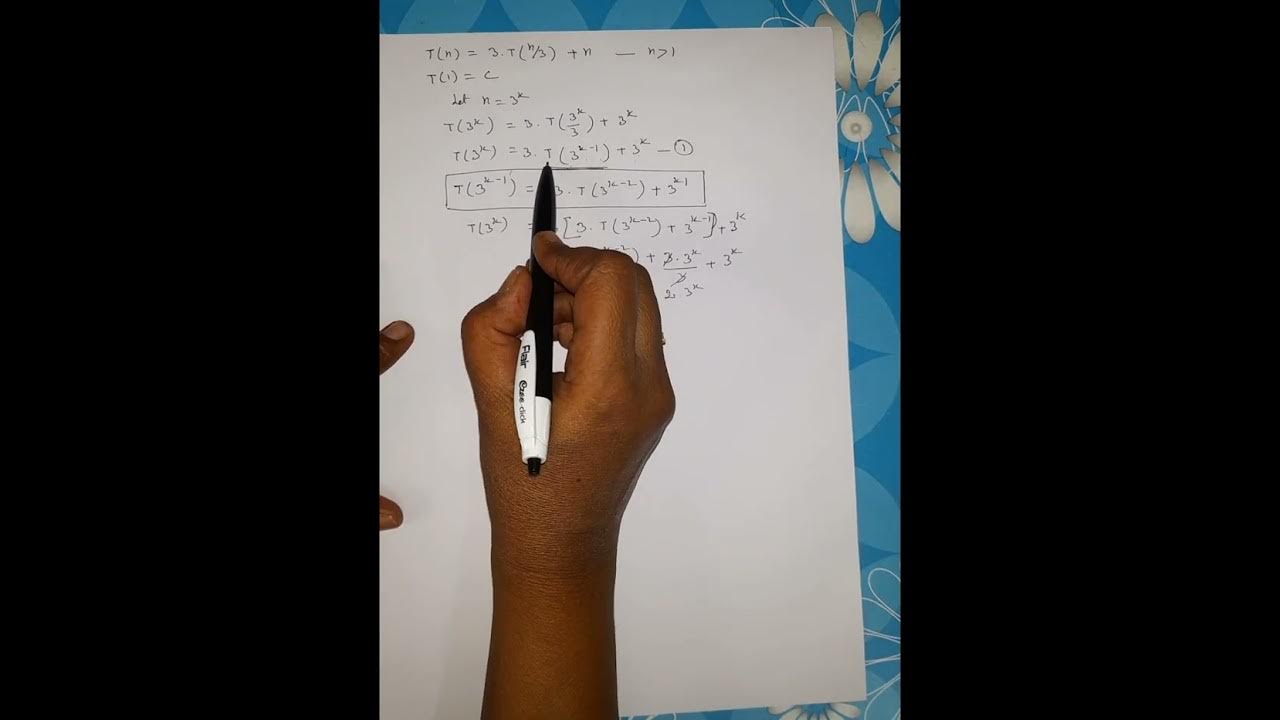 T(n) = 3.T(n/3) + n — n>1
T(1) = C
Let n = 3^k
T(3^k) = 3.T(3^k/3) + 3^k
T(3^k) = 3.T(3^k-1) + 3^k — ①
T(3^k-1) = 3.T(3^k-2) + 3^k-1
T(3^k) = [3.T(3^k-2) + 3^k-1] + 3^k
k-2) + 3.3^k/3 + 3^k
2.3^k
Flair
Ezee-click